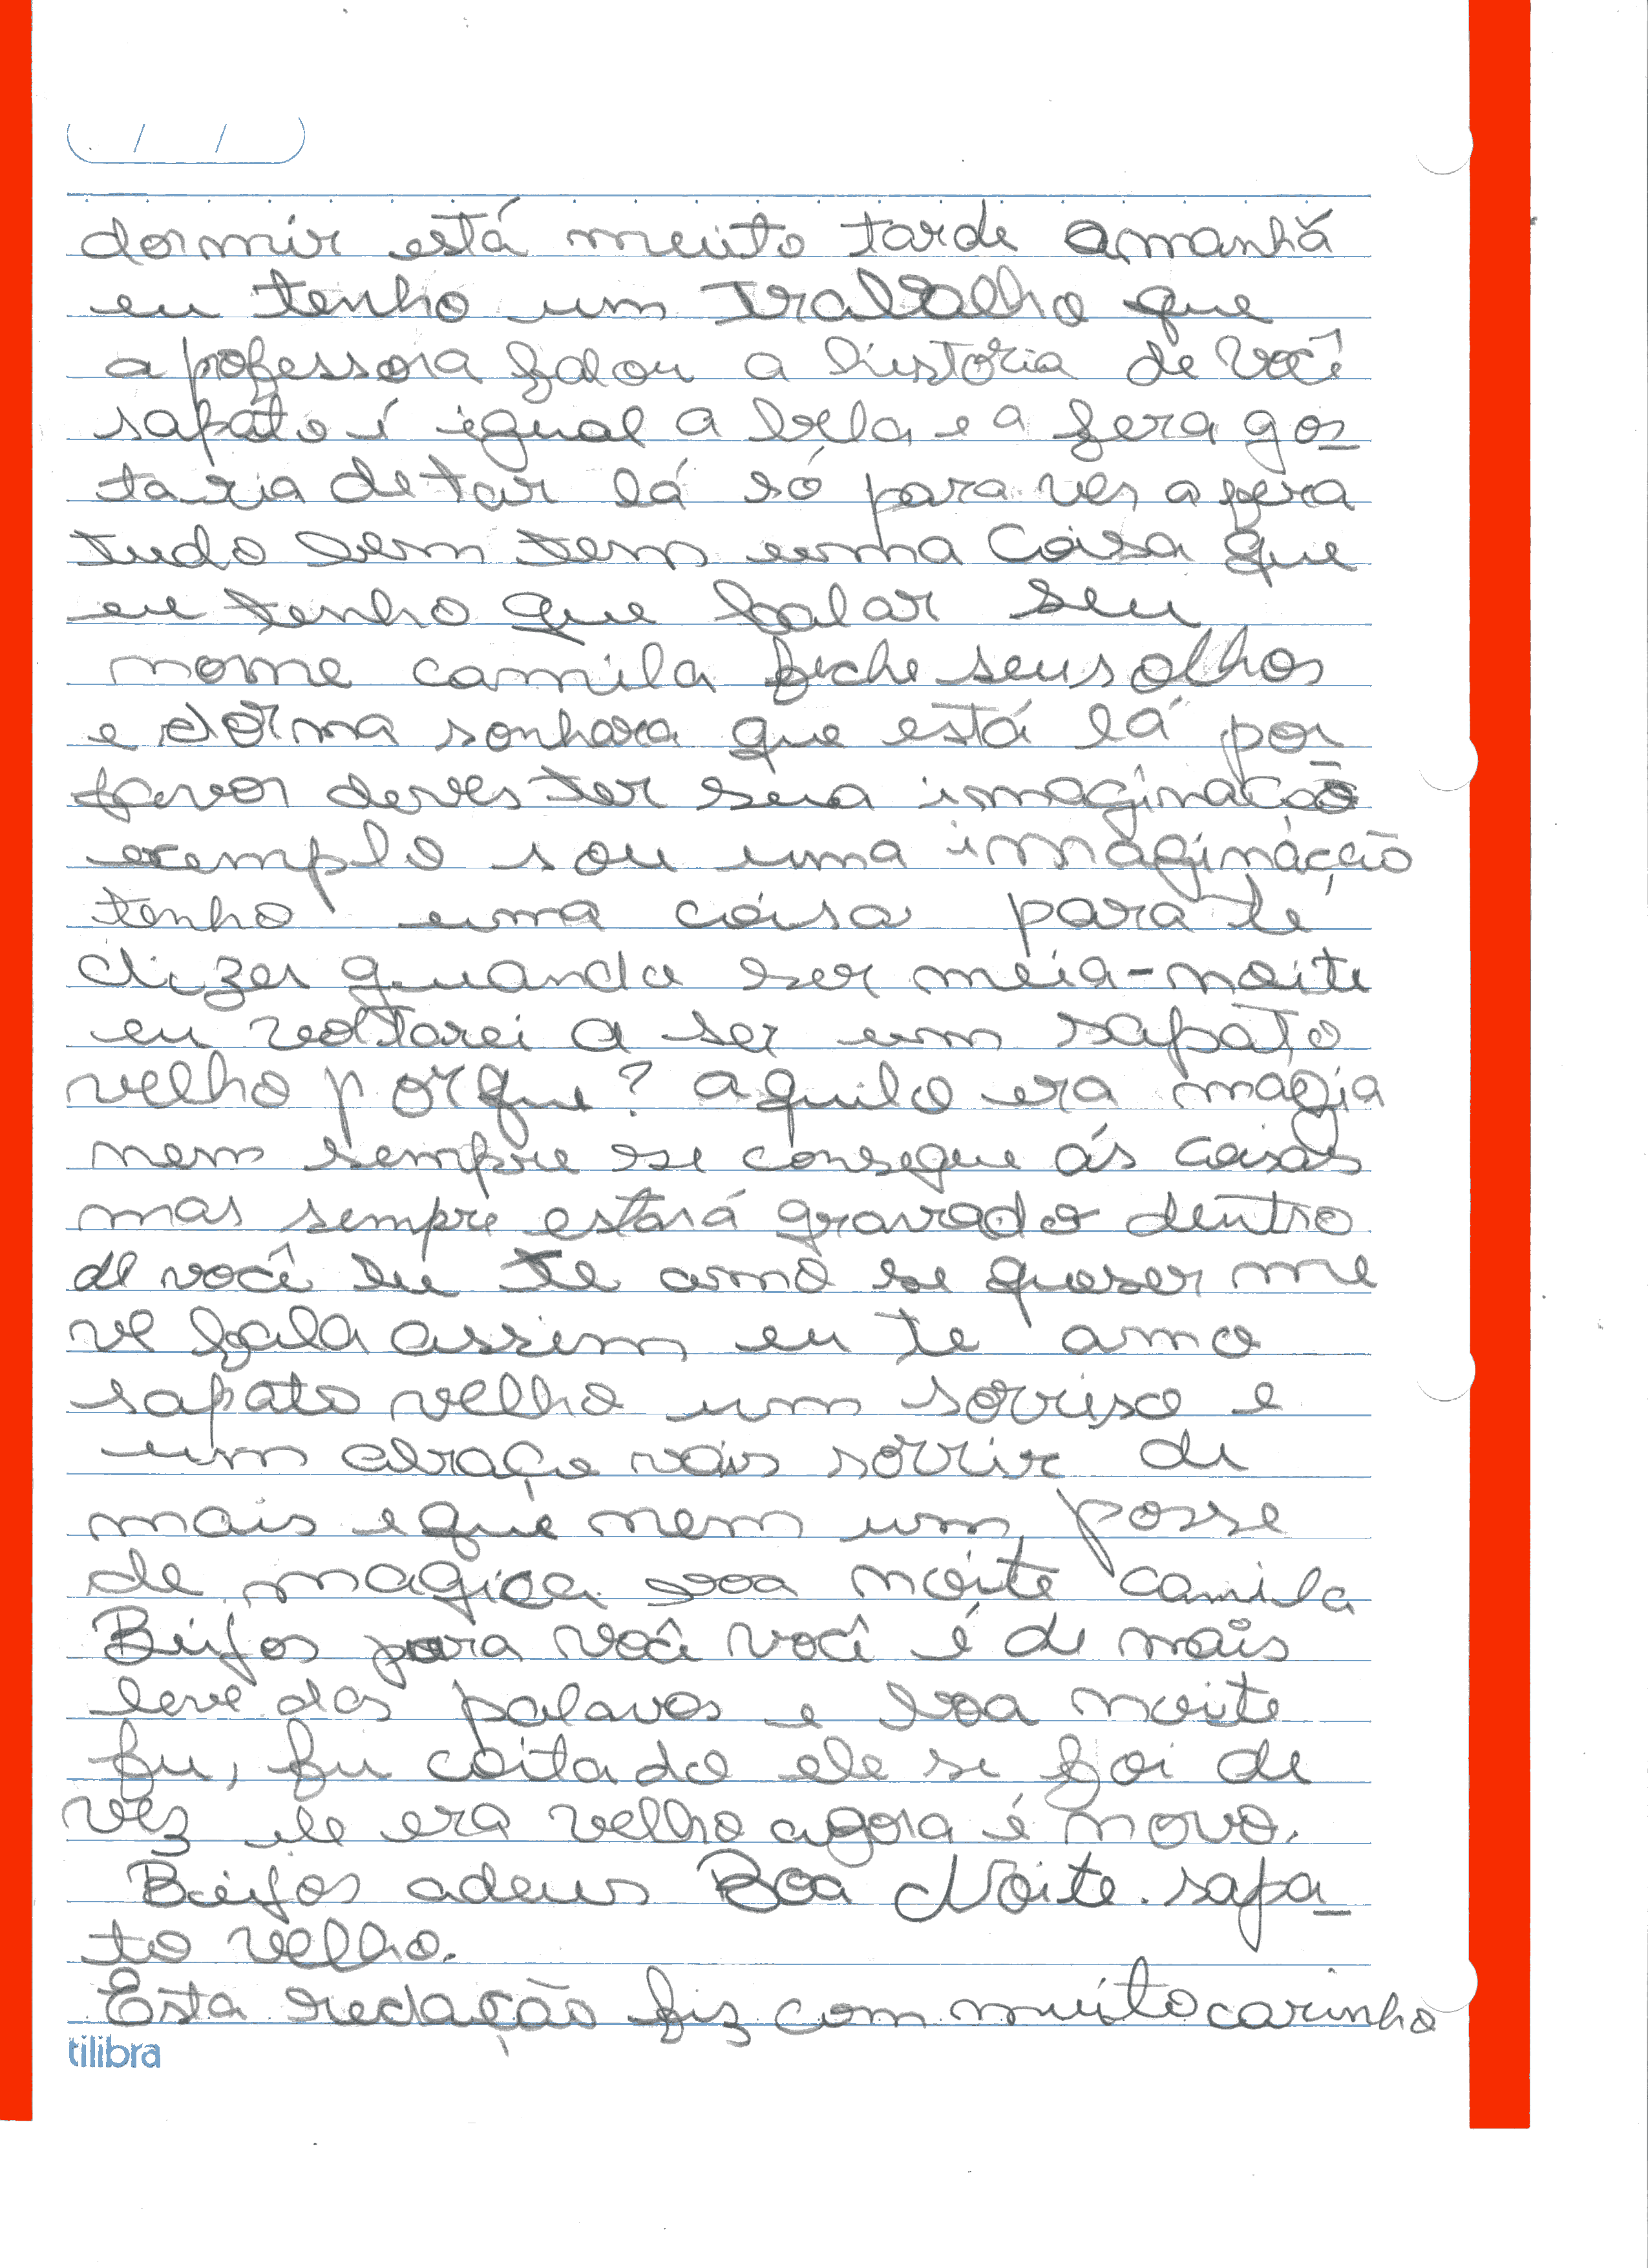 dormir está muito tarde amanhã
eu tenho um trabalho que
a professora falou a história de você
sapato é igual a bela e a fera gos_
taria de tar lá só para ver a fera
tudo bem tem uma coisa que
eu tenho que falar seu
nome camila feche seus olhos
e dorma sonhara que está lá por
favor deves ter sua imaginação
exemplo sou uma imaginácção
tenho uma coisa para te
dizer quando ser meia-noite
eu voltarei a ser um sapato
velho porque? aquilo era magia
nem sempre se consegue ás coisas
mas sempre estará gravado dentro
de você eu te amo se queser me
ve fala assim eu te amo
sapato velho um sorriso e
um abraço vais sorrir de
mais e que nem um posse
de magica boa noite camila
Beijos para você você é de mais
leve das palavas e boa noite
fu, fu coitado ele se foi de
vez ele era velho agora é novo.
Beijos adeus Boa Noite. sapa_
to velho.
Esta redação fiz com muito carinho
tilibra